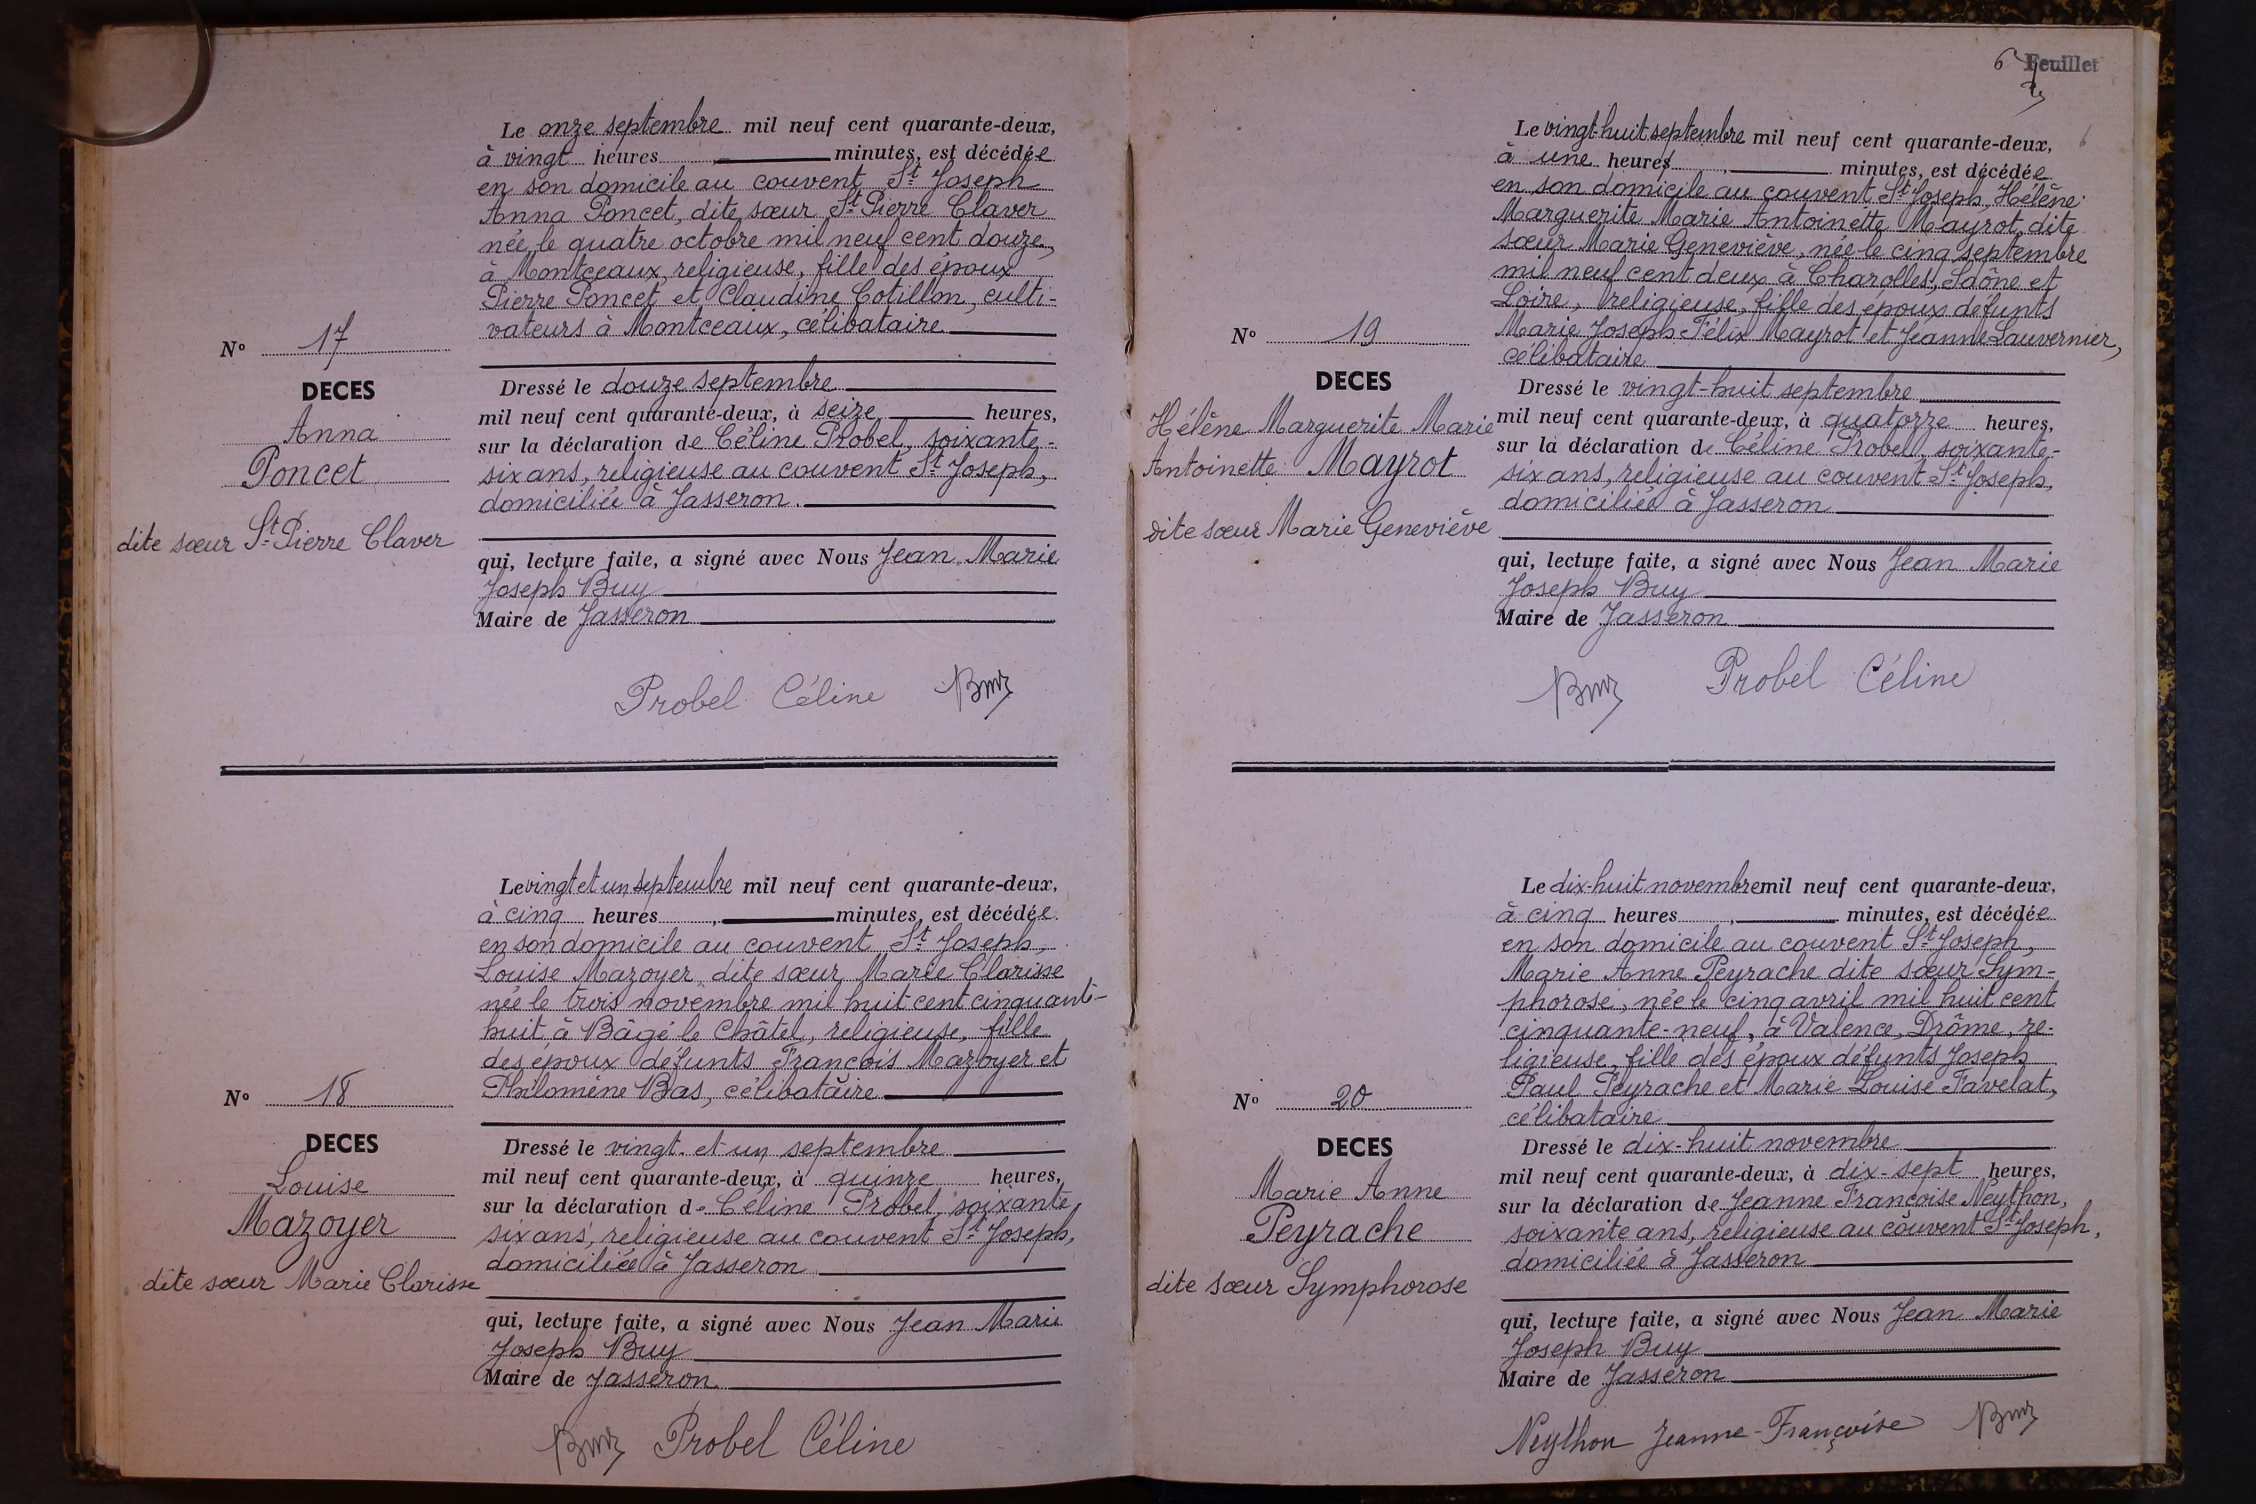 Le onze septembre mil neuf cent quarante-deux,
à vingt heures, minutes, est décédée
en son domicile au couvent St Joseph
Anna Poncet, dite sœur St Pierre Claver
née le quatre octobre mil neuf cent douze,
à Montceaux, religieuse, fille des époux
Pierre Poncet et Claudine Cotillon, culti-
vateurs à Montceaux, célibataire
N° 17
DECES
Anna
Poncet
dite sœur St Pierre Claver
Dressé le douze septembre
mil neuf cent quarante-deux, à seize heures,
sur la déclaration de Céline Probel, soixante-
six ans, religieuse au couvent St Joseph,
domiciliée à Jasseron.
qui, lecture faite, a signé avec Nous Jean Marie
Joseph Buy
Maire de Jasseron
Probel Céline Buy
Le vingt et un septembre mil neuf cent quarante-deux,
à cinq heures, minutes, est décédée
en son domicile au couvent St Joseph,
Louise Mazoyer, dite sœur Marie Clarisse
née le trois novembre mil huit cent cinquante-
huit à Bâgé le Châtel, religieuse, fille
des époux défunts François Mazoyer et
Philomène Bas, célibataire
N° 18
DECES
Louise
Mazoyer
dite sœur Marie Clarisse
Dressé le vingt et un septembre
mil neuf cent quarante-deux, à quinze heures,
sur la déclaration de Céline Probel, soixante
six ans, religieuse au couvent St Joseph,
domiciliée à Jasseron
qui, lecture faite, a signé avec Nous Jean Marie
Joseph Buy
Maire de Jasseron
Buy Probel Céline
6 Feuillet
6
Le vingt-huit septembre mil neuf cent quarante-deux,
à une heures, minutes, est décédée
en son domicile au couvent St Joseph, Hélène
Marguerite Marie Antoinette Mayrot, dite
sœur Marie Geneviève, née le cinq septembre
mil neuf cent deux à Charolles, Saône et
Loire, religieuse, fille des époux défunts
Marie Joseph Félix Mayrot et Jeanne Lauvernier,
célibataire
N° 19
DECES
Hélène Marguerite Marie
Antoinette Mayrot
dite sœur Marie Geneviève
Dressé le vingt-huit septembre
mil neuf cent quarante-deux, à quatorze heures,
sur la déclaration de Céline Probel, soixante-
six ans, religieuse au couvent St Joseph,
domiciliée à Jasseron
qui, lecture faite, a signé avec Nous Jean Marie
Joseph Buy
Maire de Jasseron
Buy Probel Céline
Le dix-huit novembre mil neuf cent quarante-deux,
à cinq heures, minutes, est décédée
en son domicile au couvent St Joseph,
Marie Anne Peyrache dite sœur Sym-
phorose, née le cinq avril mil huit cent
cinquante-neuf, à Valence, Drôme, re-
ligieuse, fille des époux défunts Joseph
Paul Peyrache et Marie Louise Favelat,
célibataire
N° 20
DECES
Marie Anne
Peyrache
dite sœur Symphorose
Dressé le dix-huit novembre
mil neuf cent quarante-deux, à dix-sept heures,
sur la déclaration de Jeanne Françoise Neython,
soixante ans, religieuse au couvent St Joseph,
domiciliée à Jasseron
qui, lecture faite, a signé avec Nous Jean Marie
Joseph Buy
Maire de Jasseron
Neython Jeanne-Françoise Buy